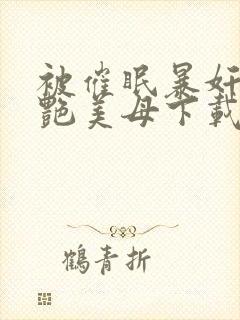 被催眠暴奸
艳美母下载
鹤青折